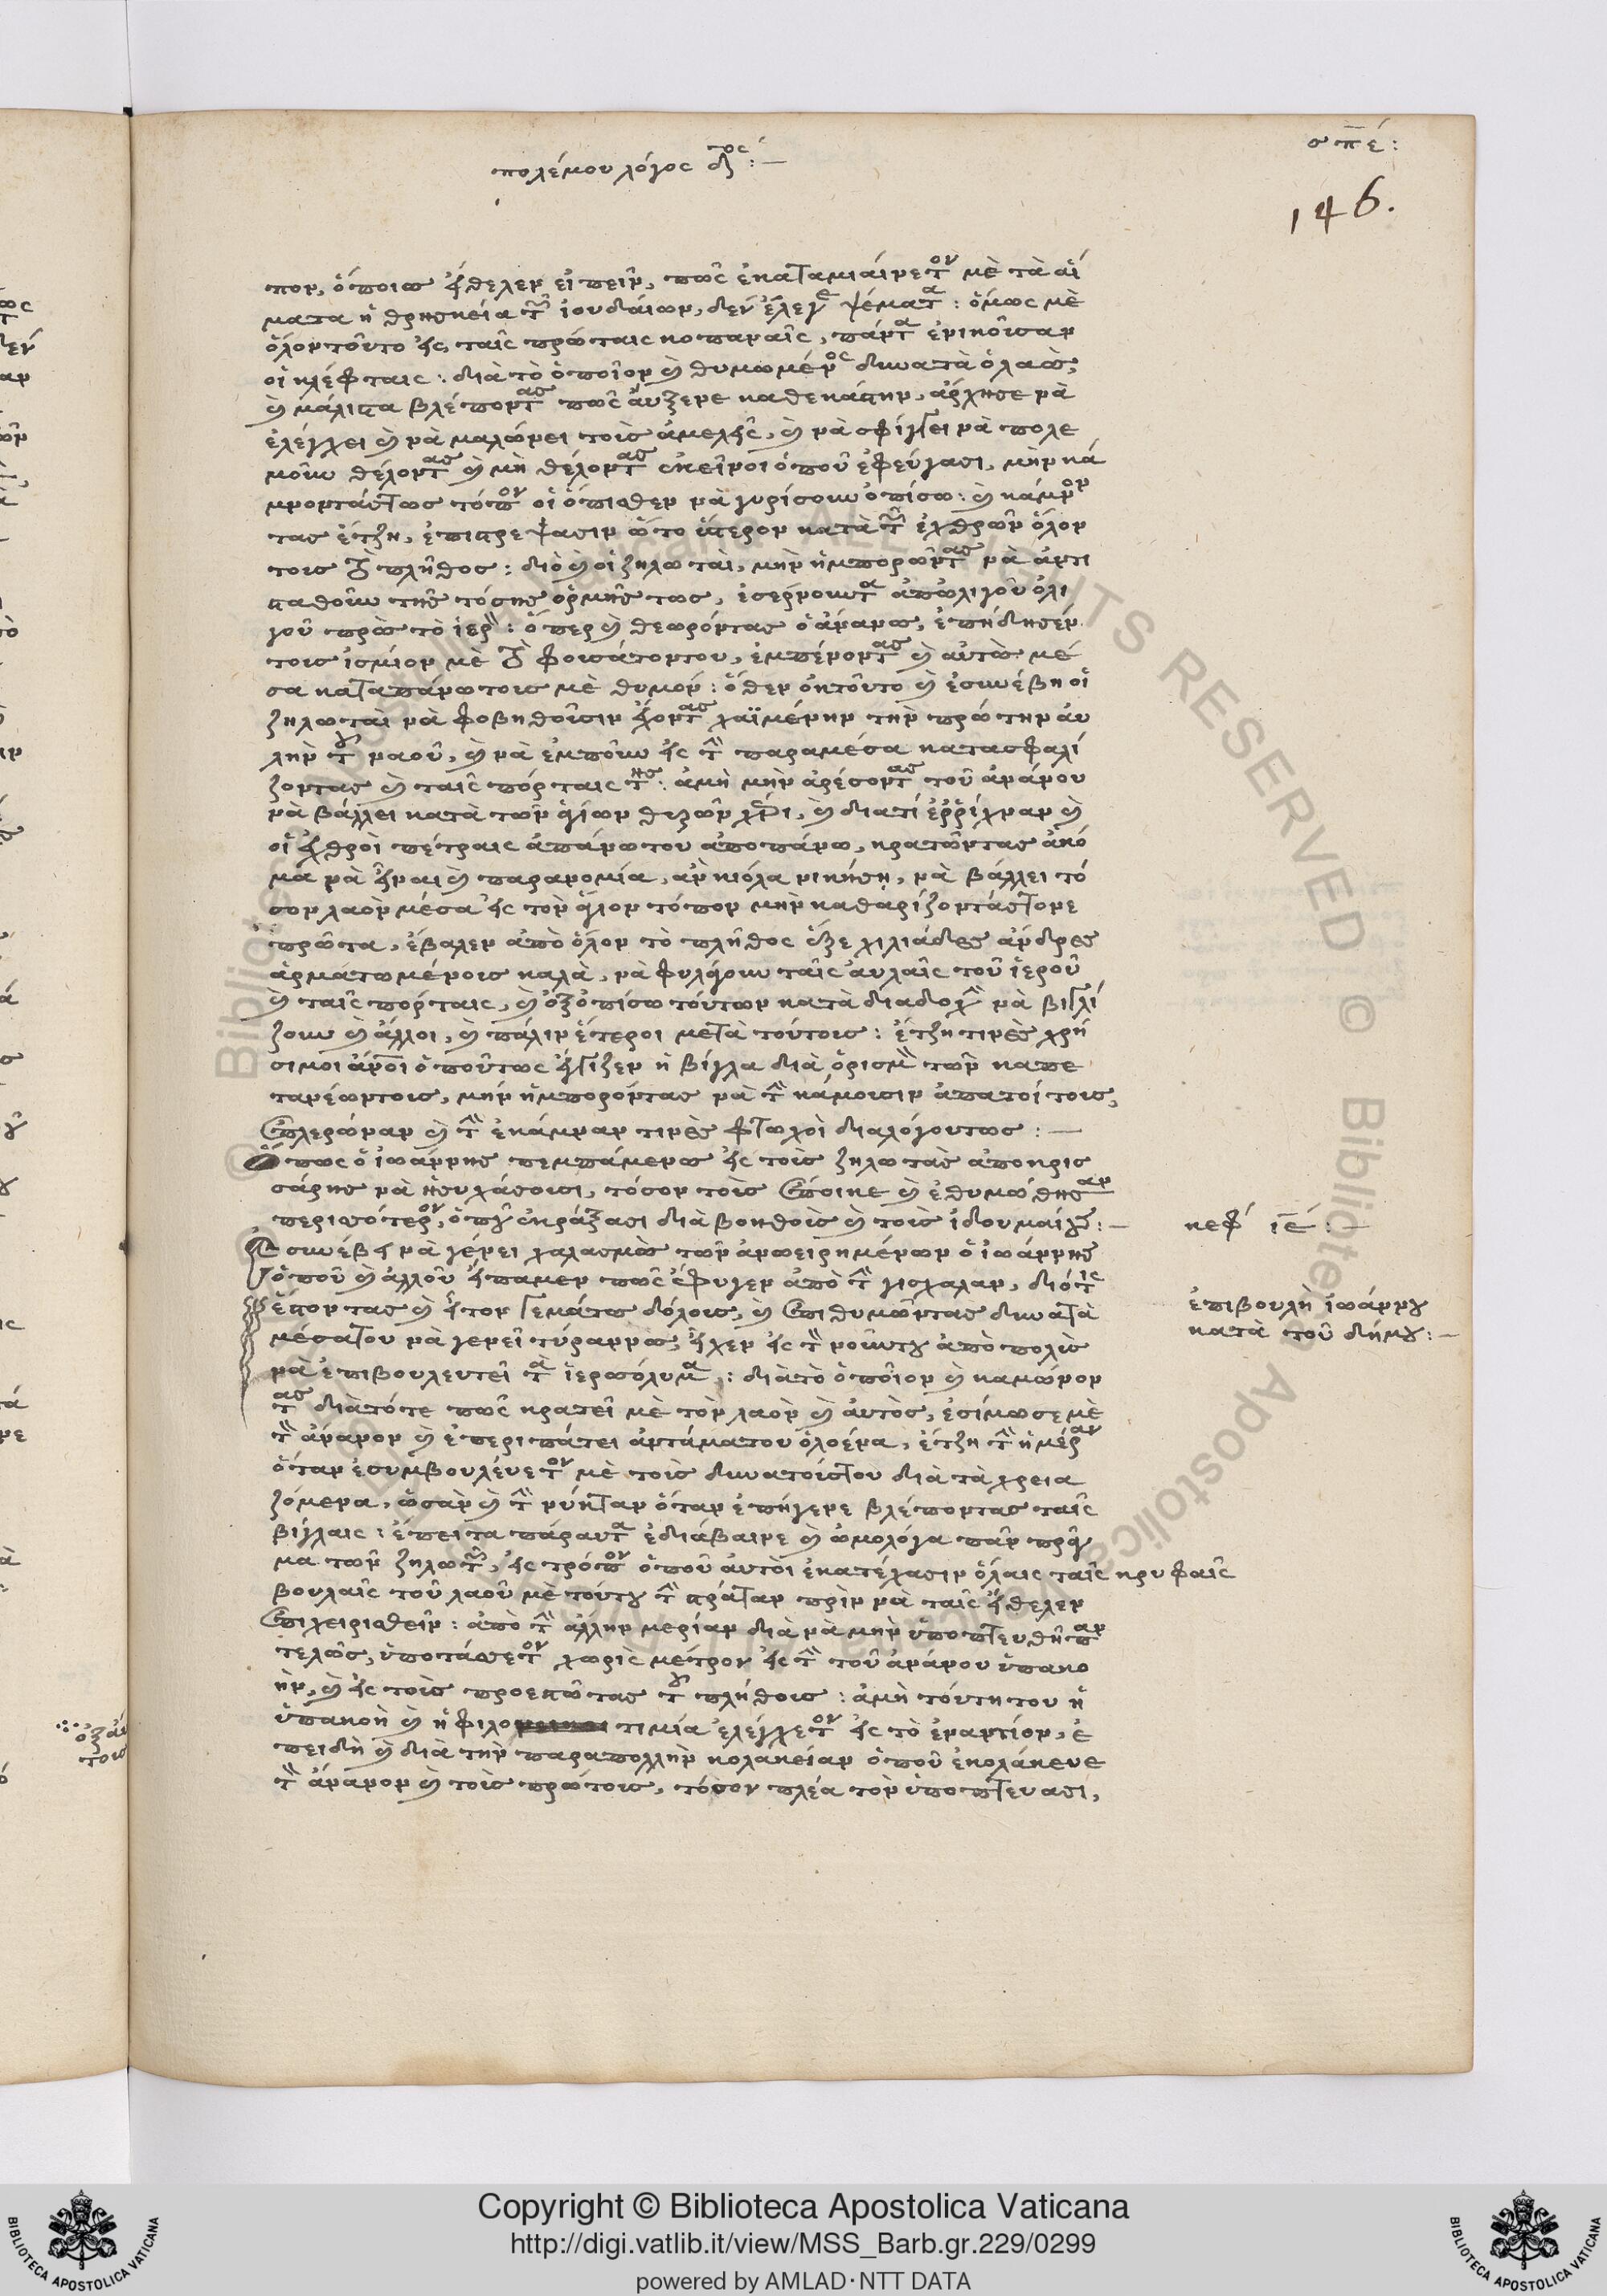 σπέ:
πολέμου λόγος δ^τος:—
146.
πον, ὅποιος ἤθελεν εἰπεῖν, πῶς ἐκαταμιαίνετον μὲ τὰ αἵ
ματα ἡ θρησκεία τῶν ἰουδαίων, δεν ἔλεγε ψέματα: ὅμως μὲ
ὅλον τοῦτο εἰς ταῖς πρώταις κοπαναῖς, πάντα ἐνικοῦσαν
οἱ κλέφταις: διὰ τὸ ὁποῖον καὶ θυμωμένος δυνατὰ ὁ λαὸς,
καὶ μάλιστα βλέποντας πῶς ἄυξενε καθεκάστην, ἄρχησε νὰ
ἐλέγχει καὶ νὰ μαλώνει τοὺς ἀμελεῖς, καὶ νὰ σφίγγει νὰ πολε
μοῦν θέλοντας καὶ μὴ θέλοντας ἐκεῖνοι ὁποῦ ἐφεύγασι, μὴν κά
μνοντάς τως τόπον οἱ ὄπισθεν νὰ γυρίσουν ὀπίσω: καὶ κάμνον
τας ἔτζη, ἐπιστρέψασιν ὥς το ὕστερον κατὰ τῶν ἐχθρῶν ὅλον
τοις τὸ πλῆθος: διὸ καὶ οἱ ζηλωταὶ, μὴν ἠμπορῶντας νὰ ἀντι
σταθοῦν τῆς τόσης ὁρμῆς τως, ἐσέρνουντα ἀπ' ὀλιγοῦ ὀλι
γοῦ πρὸς τὸ ἱερὸν: ὅπερ καὶ θεωρόντας ὁ ἄνανος, ἐπήδησέν
τοις ἰσμίον μὲ τὸ φουσάτον του, ἐμπένοντας καὶ αὐτὸς μέ
σα καταπάνω τοις μὲ θυμόν: ὅθεν ἐκ τοῦτο καὶ ἐσυνέβη οἱ
ζηλωταὶ νὰ φοβηθοῦσιν ἔχοντας χαϊμένην τὴν πρώτην ἀυ
λὴν τοῦ ναοῦ, καὶ νὰ ἐμποῦν εἰς τὴν παραμέσα κατασφαλί
ζοντας καὶ ταῖς πόρταις της: ἀμὴ μὴν ἀρέσοντας τοῦ ἀνάνου
νὰ βάλλει κατὰ τῶν ἁγίων θυρῶν χέρι, καὶ διατί ἐῤῥίχναν καὶ
οἱ ἐχθροὶ πέτραις ἀπάνω του ἀπὸ πάνω, κρατῶντας ἀκό
μα νὰ εἶναι καὶ παρανομία, ἂν κιόλα νικήση, νὰ βάλλει τό
σον λαὸν μέσα εἰς τὸν ἅγιον τόπον μὴν καθαρίζοντάς τονε
πρῶτα, ἔβαλεν ἀπὸ ὅλον τὸ πλῆθος ἕξε χιλιάδες ἄνδρες
ἀρματωμένοις καλὰ, νὰ φυλάγουν ταῖς ἀυλαῖς τοῦ ἱεροῦ
καὶ ταῖς πόρταις, καὶ ὀξοπίσω τούτων κατὰ διαδοχὴν νὰ βιγλί
ζουν καὶ ἄλλοι, καὶ πάλιν ἕτεροι μετὰ τούτοις: ἔτζη τινὲς χρή
σιμοι ἄνθρωποι ὁποῦ τως ἤγγιζεν ἡ βίγλα διὰ ὁρισμὸν τῶν καπε
τανέων τοις, μὴν ἠμπορόντας νὰ τὴν κάμουσιν ἀπατοί τοις,
ἐπλερώναν καὶ τὴν ἐκάμναν τινὲς φτωχοὶ διαλόγου τως:—
Ὅπως ὁ ἰωάννης πεμπάμενος εἰς τοὺς ζηλωτὰς ἀποκρισ
σάρης νὰ ἡσυχάσουσι, τόσον τοὺς ἐποίκε καὶ ἐθυμώθησαν
περισότερον, ὁποῦ ἐκράξασι διὰ βοηθοὺς καὶ τοὺς ἰδουμαίους:—
κεφ' ιέ:—
Ἐσυνέβη νὰ γένει χαλασμὸς τῶν ἀνωειρημένων ὁ ἰωάννης
ὁποῦ καὶ ἀλλοῦ εἴπαμεν πῶς ἔφυγεν ἀπὸ τὴν γισχαλαν, διότις
ἔστοντας καὶ ἦτον γεμάτος δόλοις, καὶ ἐπιθυμῶντας δυνατὰ
μέσα του νὰ γενεῖ τύραννος, εἶχεν εἰς τὸν νοῦν του ἀπὸ πολὺ
ἐπιβουλὴ ἰωάννου
κατὰ τοῦ δήμου:—
νὰ ἐπιβουλευτεῖ τὰ ἱεροσόλυμα: διὰ τὸ ὁποῖον καὶ καμώνον
τας διὰ τότε πῶς κρατεῖ μὲ τὸν λαὸν καὶ ἀυτὸς, ἐσίμωσε μὲ
τὸν ἄνανον καὶ ἐπεριπάτει ἀντάμα του ὁλοένα, ἔτζη τὴν ἡμέραν
ὅταν ἐσυμβουλέυετον μὲ τοὺς δυνατούς του διὰ τὰ χρεια
ζόμενα, ὡσὰν καὶ τὴν νύκταν ὅταν ἐπήγενε βλέποντας ταῖς
βίγλαις: ἔπειτα πάραυτα ἐδιάβαινε καὶ ὡμολόγα πᾶν πρᾶγ
μα τῶν ζηλωτῶν, εἰς τρόπον ὁποῦ ἀυτοὶ ἐκατέχασιν ὅλαις ταῖς κρυφαῖς
βουλαῖς τοῦ λαοῦ μὲ τούτου τὴν στράταν πρὶν νὰ ταῖς ἤθελεν
ἐπιχειρισθεῖν: ἀπὸ τὴν ἄλλην μερίαν διὰ νὰ μὴν ὑποπτευθῆ παν
τελῶς, ὑποτάσετον χωρὶς μέτρον εἰς τὴν τοῦ ἀνάνου ὑπακο
ὴν, καὶ εἰς τοὺς προεστῶτας τοῦ πλήθους: ἀμὴ τούτη του ἡ
ὑπακοὴ καὶ ἡ φιλοτιμία ἐλέγχετον εἰς τὸ ἐναντίον, ἐ
πειδὴ καὶ διὰ τὴν παραπολλὴν κολακείαν ὁποῦ ἐκολάκευε
τὸν ἄνανον καὶ τοὺς πρώτοις, τόσον πλέα τὸν ὑποπτευασι,
Copyright © Biblioteca Apostolica Vaticana
http://digi.vatlib.it/view/MSS_Barb.gr.229/0299
powered by AMLAD·NTT DATA
BIBLIOTECA APOSTOLICA VATICANA
BIBLIOTECA APOSTOLICA VATICANA